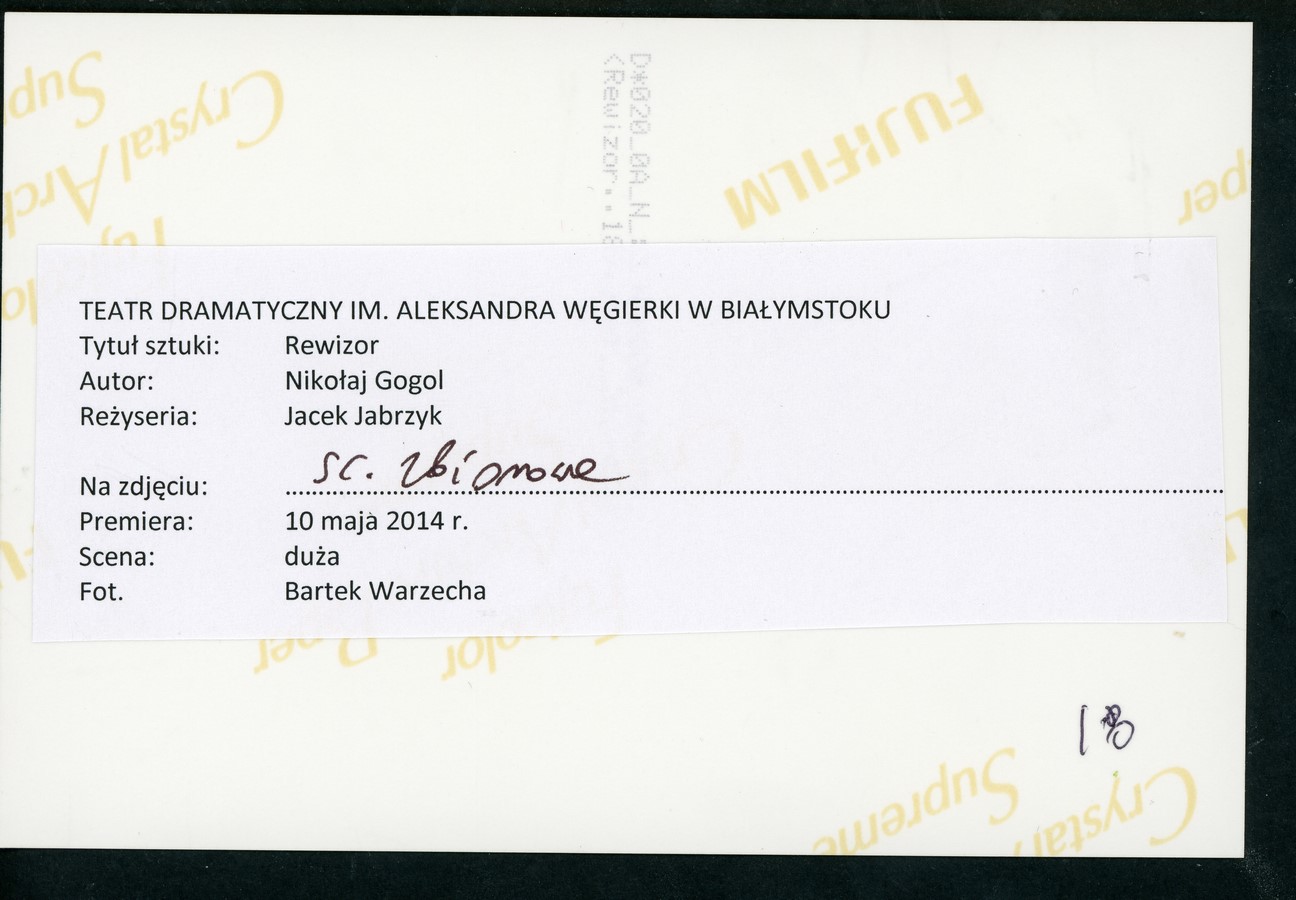 D*020_0A_N_
<Rewizor..18
FUJIFILM
Crystal Arch
Supr
per
TEATR DRAMATYCZNY IM. ALEKSANDRA WĘGIERKI W BIAŁYMSTOKU
Tytuł sztuki: Rewizor
Autor: Nikołaj Gogol
Reżyseria: Jacek Jabrzyk
Na zdjęciu: sc. zbiorowa
Premiera: 10 maja 2014 r.
Scena: duża
Fot. Bartek Warzecha
18
Supreme
Crystal